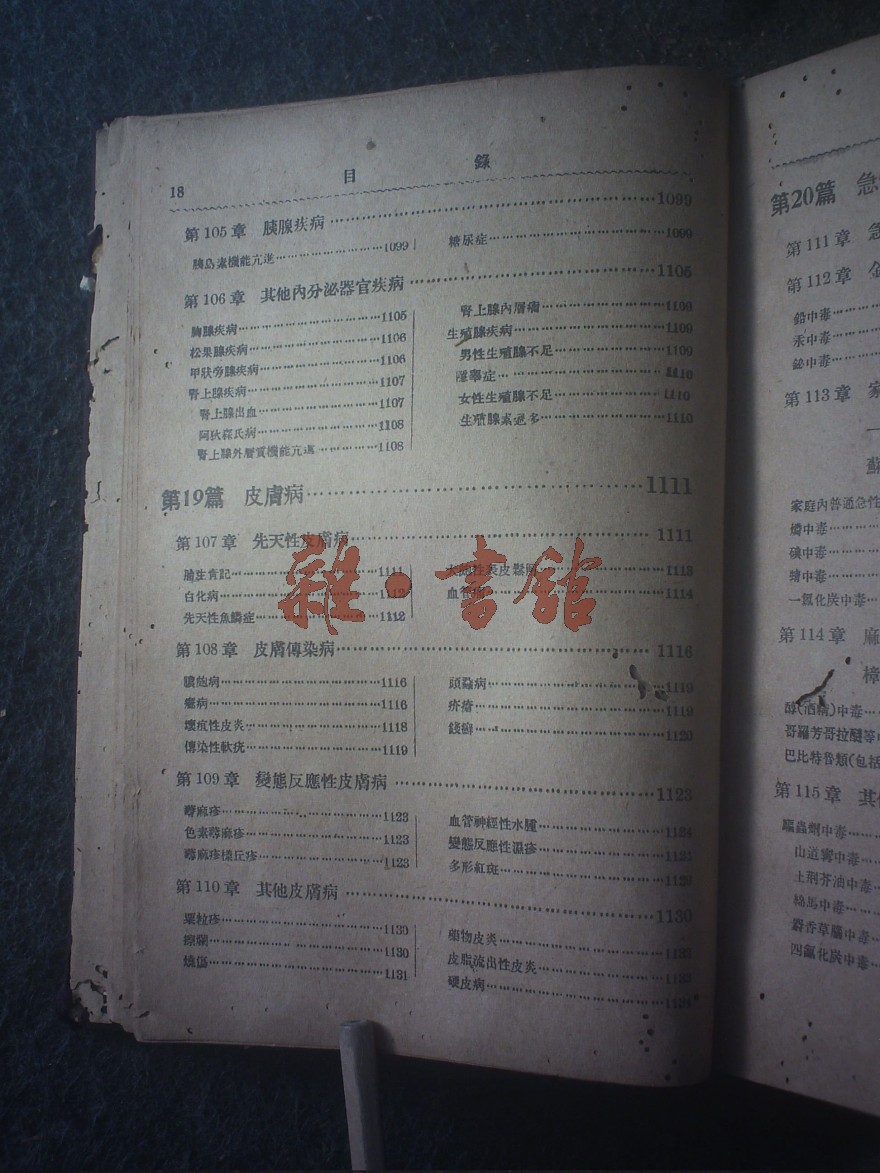 18 目 錄
第105章 胰腺疾病……1099
胰島素機能亢進……1099
糖尿症……1099
第106章 其他內分泌器官疾病……1105
胸腺疾病……1105
松果腺疾病……1106
甲狀旁腺疾病……1106
腎上腺疾病……1107
腎上腺出血……1107
阿狄森氏病……1108
腎上腺外層質機能亢進……1108
腎上腺內層瘤……1109
生殖腺疾病……1109
男性生殖腺不足……1109
隱睾症……1110
女性生殖腺不足……1110
生殖腺素過多……1110
第19篇 皮膚病……1111
第107章 先天性皮膚病……1111
胎生青記……1111
白化病……1112
先天性魚鱗症……1112
大皰性表皮鬆……1113
血管……1114
第108章 皮膚傳染病……1116
膿皰病……1116
癤病……1116
壞疽性皮炎……1118
傳染性軟疣……1119
頭蝨病……1119
疥瘡……1119
錢癬……1120
第109章 變態反應性皮膚病……1123
蕁麻疹……1123
色素蕁麻疹……1123
蕁麻疹樣丘疹……1123
血管神經性水腫……1124
變態反應性濕疹……1125
多形紅斑……1129
第110章 其他皮膚病……1130
粟粒疹……1130
擦爛……1130
燒傷……1131
藥物皮炎……1132
皮脂流出性皮炎……1133
硬皮病……1134
雜·書館
第20篇 急
第111章 急
第112章 金
鉛中毒……
汞中毒……
鉍中毒……
第113章 家
蘇
家庭內普通急性
燐中毒……
碘中毒……
一氧化炭中毒……
第114章 麻
樟
醇(酒精)中毒……
哥羅芳哥拉醚等
巴比特魯類(包括
第115章 其
驅蟲劑中毒……
山道甯中毒……
土荊芥油中毒……
綿馬中毒……
麝香草腦中毒……
四氯化炭中毒……